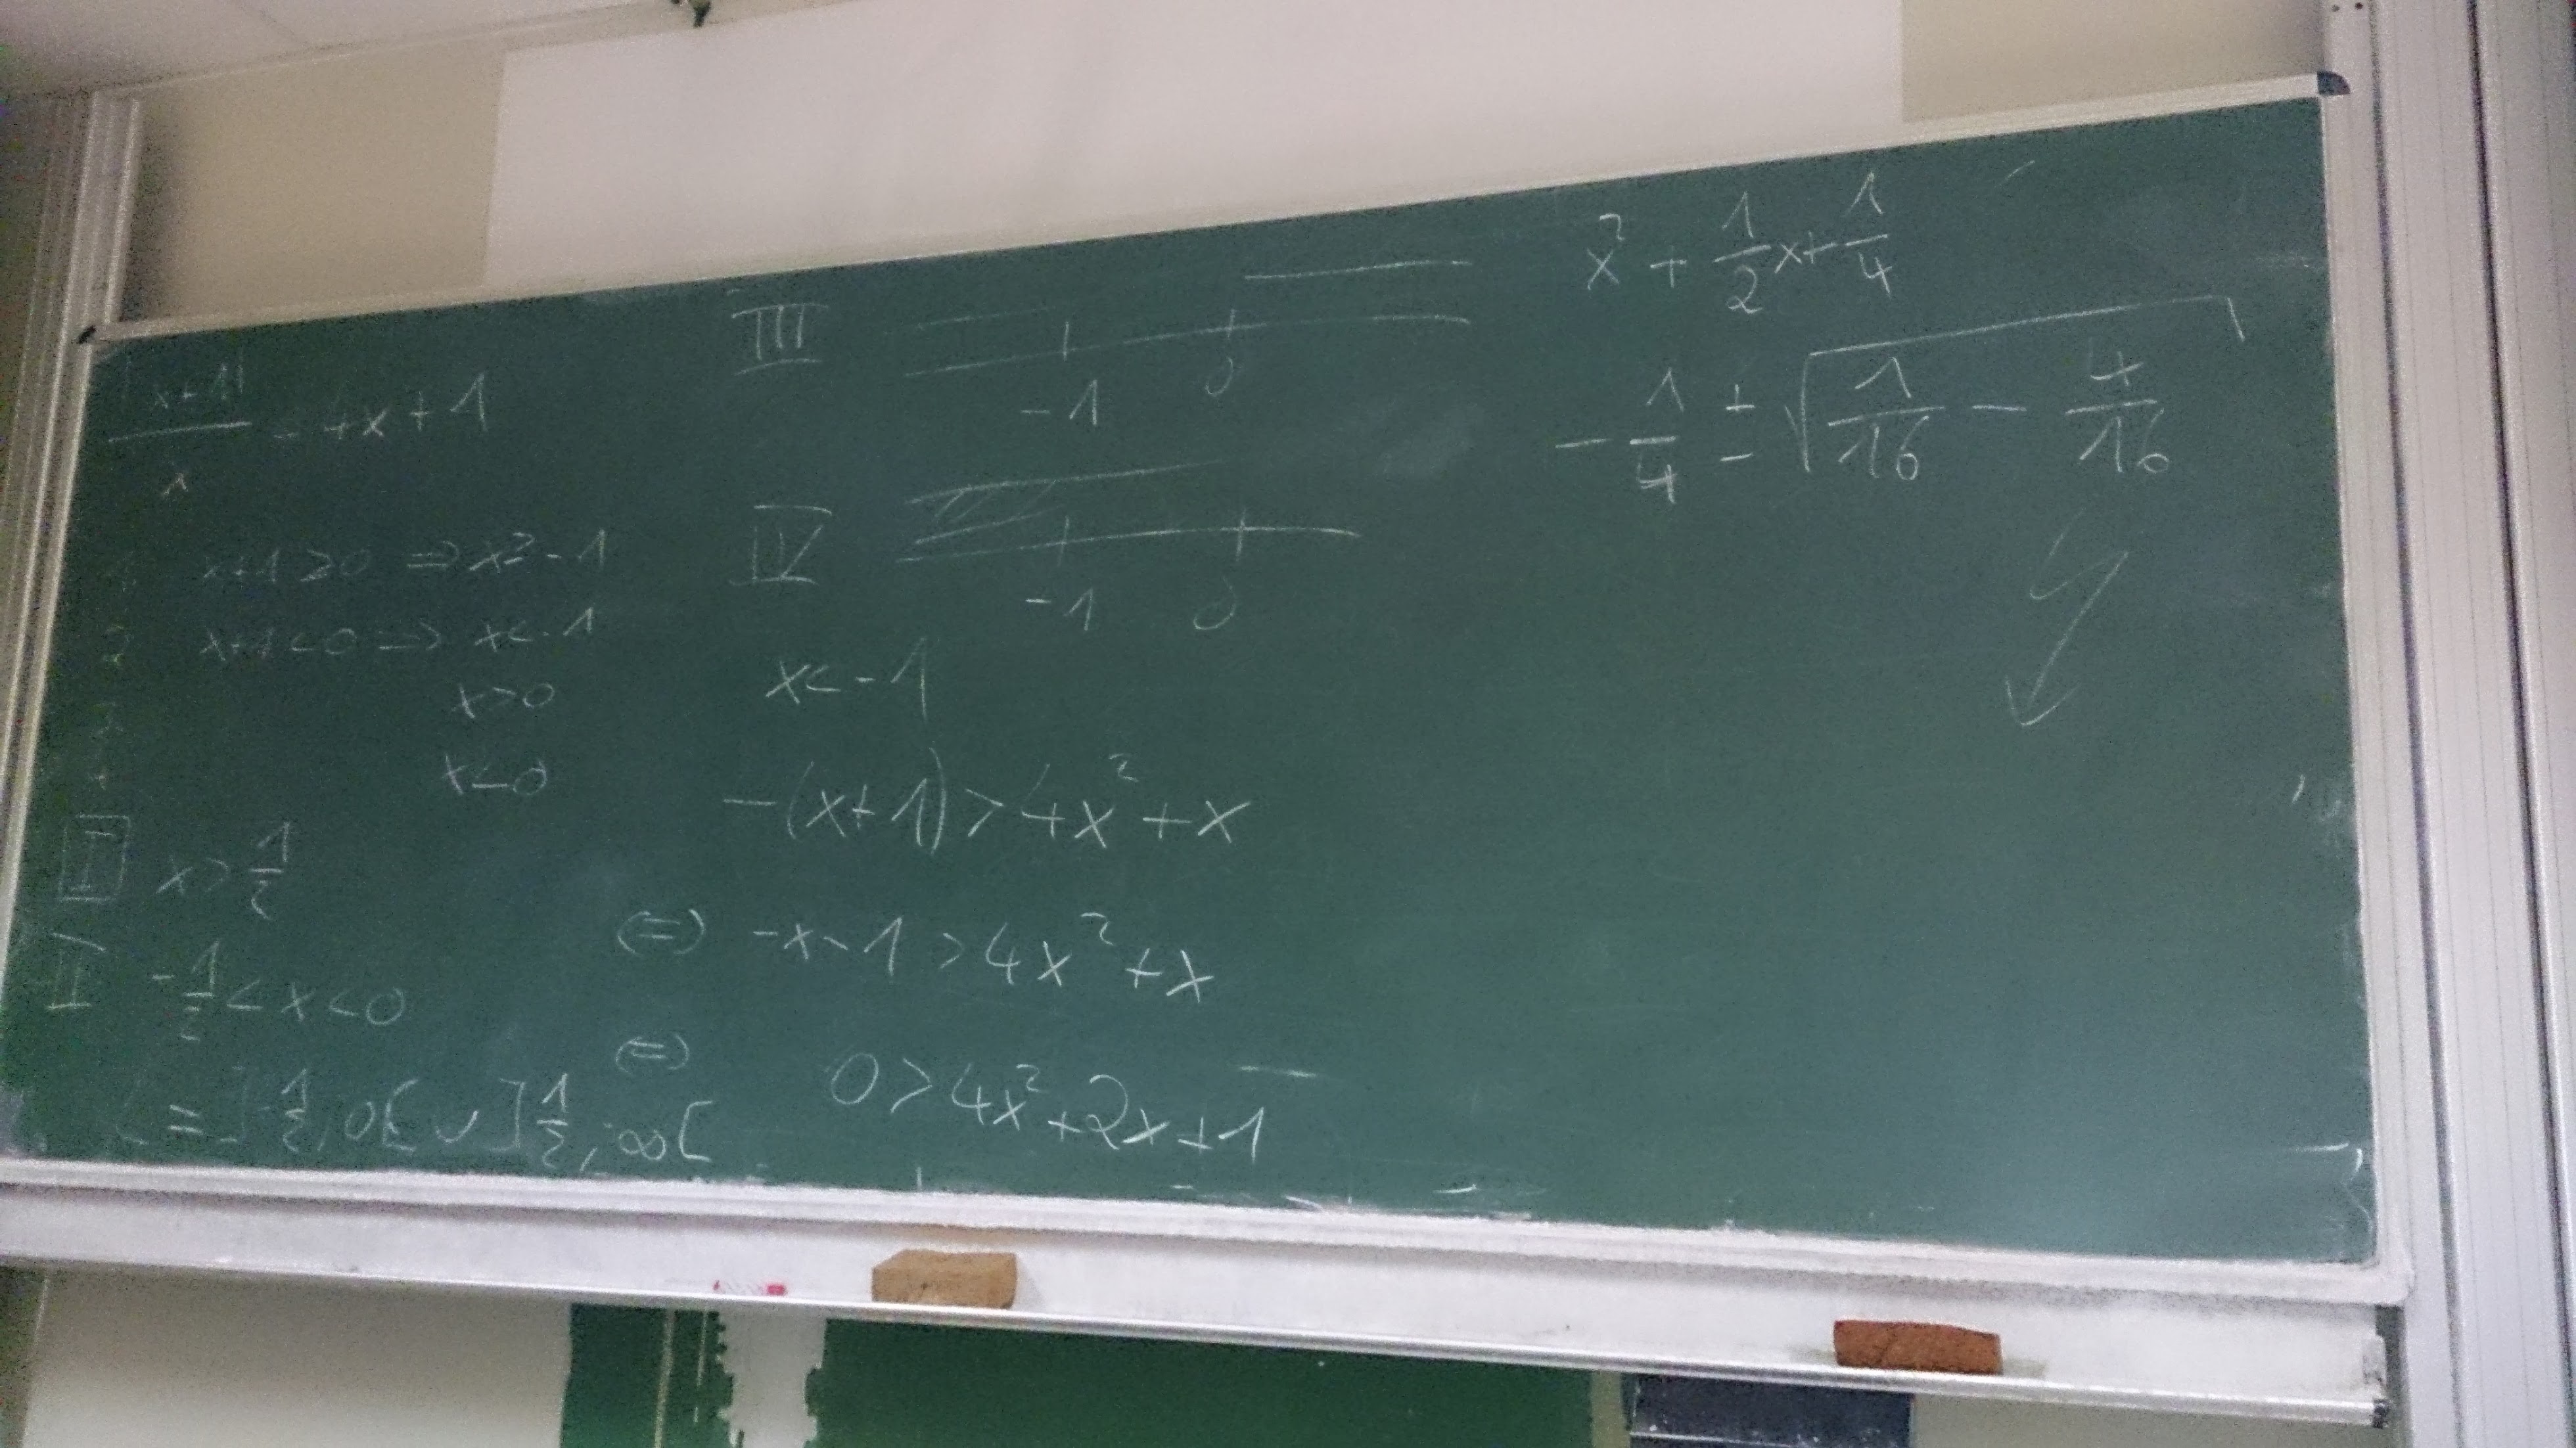 |x+1|
x
4x+1
x+1≥0 ⇒ x≥-1
x+1<0 ⇒ x<-1
x>0
x<0
I x>1/2
II -1/2<x<0
L=]-1/2;0[∪]1/2;∞[
III
-1 0
IV
-1 0
x<-1
-(x+1)>4x²+x
(=) -x-1>4x²+x
(=) 0>4x²+2x+1
x²+1/2x+1/4
-1/4±√1/16-4/16